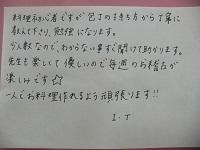 料理初心者ですが包丁の持ち方から丁寧に
教えて下さり、勉強になります。
少人数なので、わからない事すぐ聞けて助かります。
先生も楽しくて優しいので毎週のお稽古が
楽しみです☆
一人でお料理作れるよう頑張ります!!
I.T